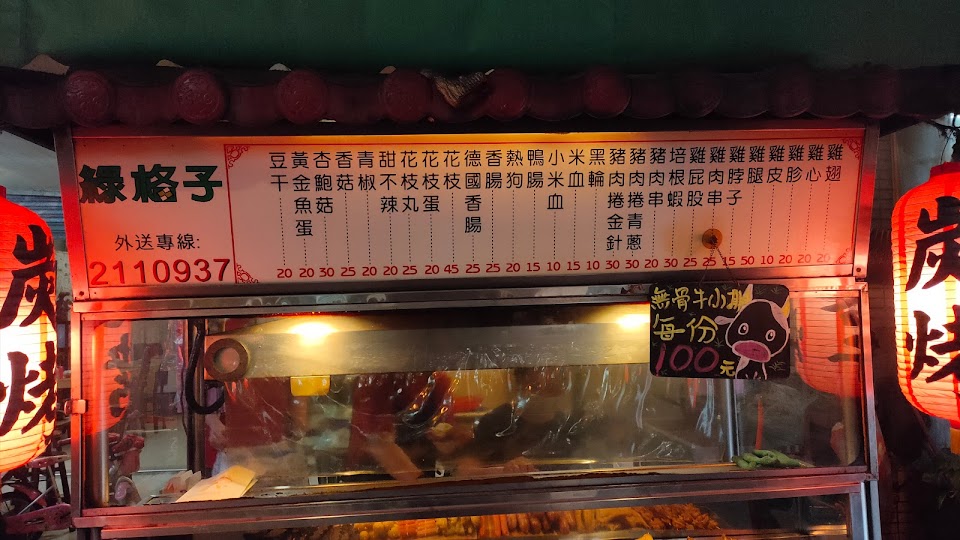 綠格子
外送專線:
2110937
豆干 20
黃金魚蛋 20
杏鮑菇 30
香菇 25
青椒 20
甜不辣 20
花枝丸 25
花枝蛋 20
花枝 45
德國香腸 25
香腸 25
熱狗 20
鴨腸 15
小米血 10
米血 15
黑輪 10
豬肉捲金針 30
豬肉捲青蔥 30
豬肉串 20
培根蝦 30
雞屁股 25
雞肉串 25
雞脖子 15
雞腿 50
雞皮 10
雞胗 20
雞心 20
雞翅 20
無骨牛小排
每份
100元
炭烤
炭烤